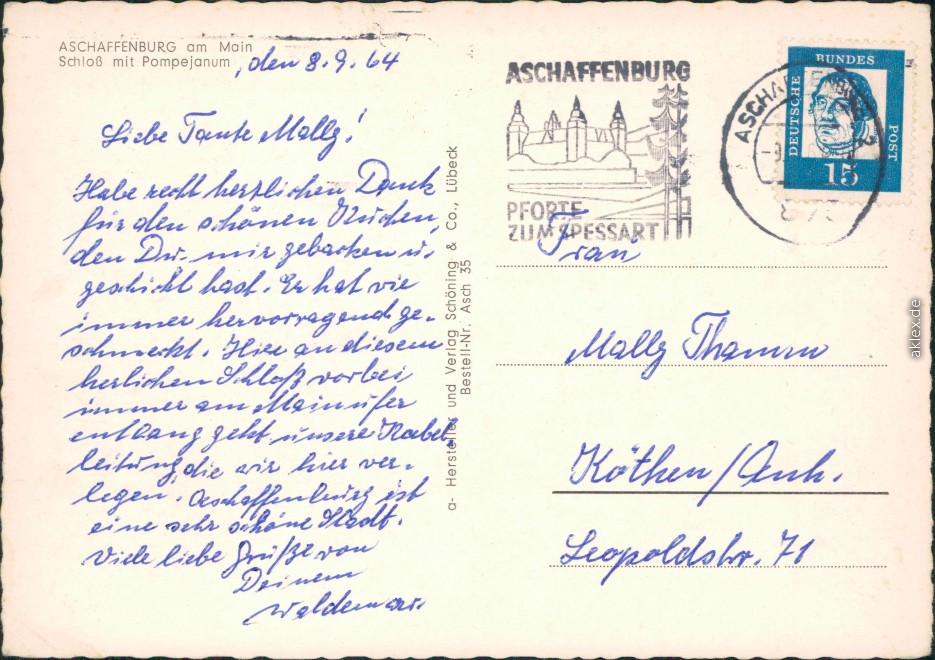 ASCHAFFENBURG am Main
Schloß mit Pompejanum
, den 8.9.64
Liebe Tante Mally!
Habe recht herzlichen Dank
für den schönen Kuchen,
den Du mir gebacken u.
geschickt hast. Er hat wie
immer hervorragend ge-
schmeckt. Hier an diesem
herlichen Schloß vorbei
immer am Mainufer
entlang geht unsere Kabel
leitung, die wir hier ver-
legen. Aschaffenburg ist
eine sehr schöne Stadt.
Viele liebe Grüße von
Deinem
Waldemar.
a- Hersteller und Verlag Schöning & Co., Lübeck
Bestell-Nr. Asch 35
ASCHAFFENBURG
PFORTE
ZUM SPESSART
ASCHAFFENBURG 2
DEUTSCHE
BUNDES
POST
15
Frau
Mally Thamm
Köthen/Anh.
Leopoldstr. 71
© aklex.de